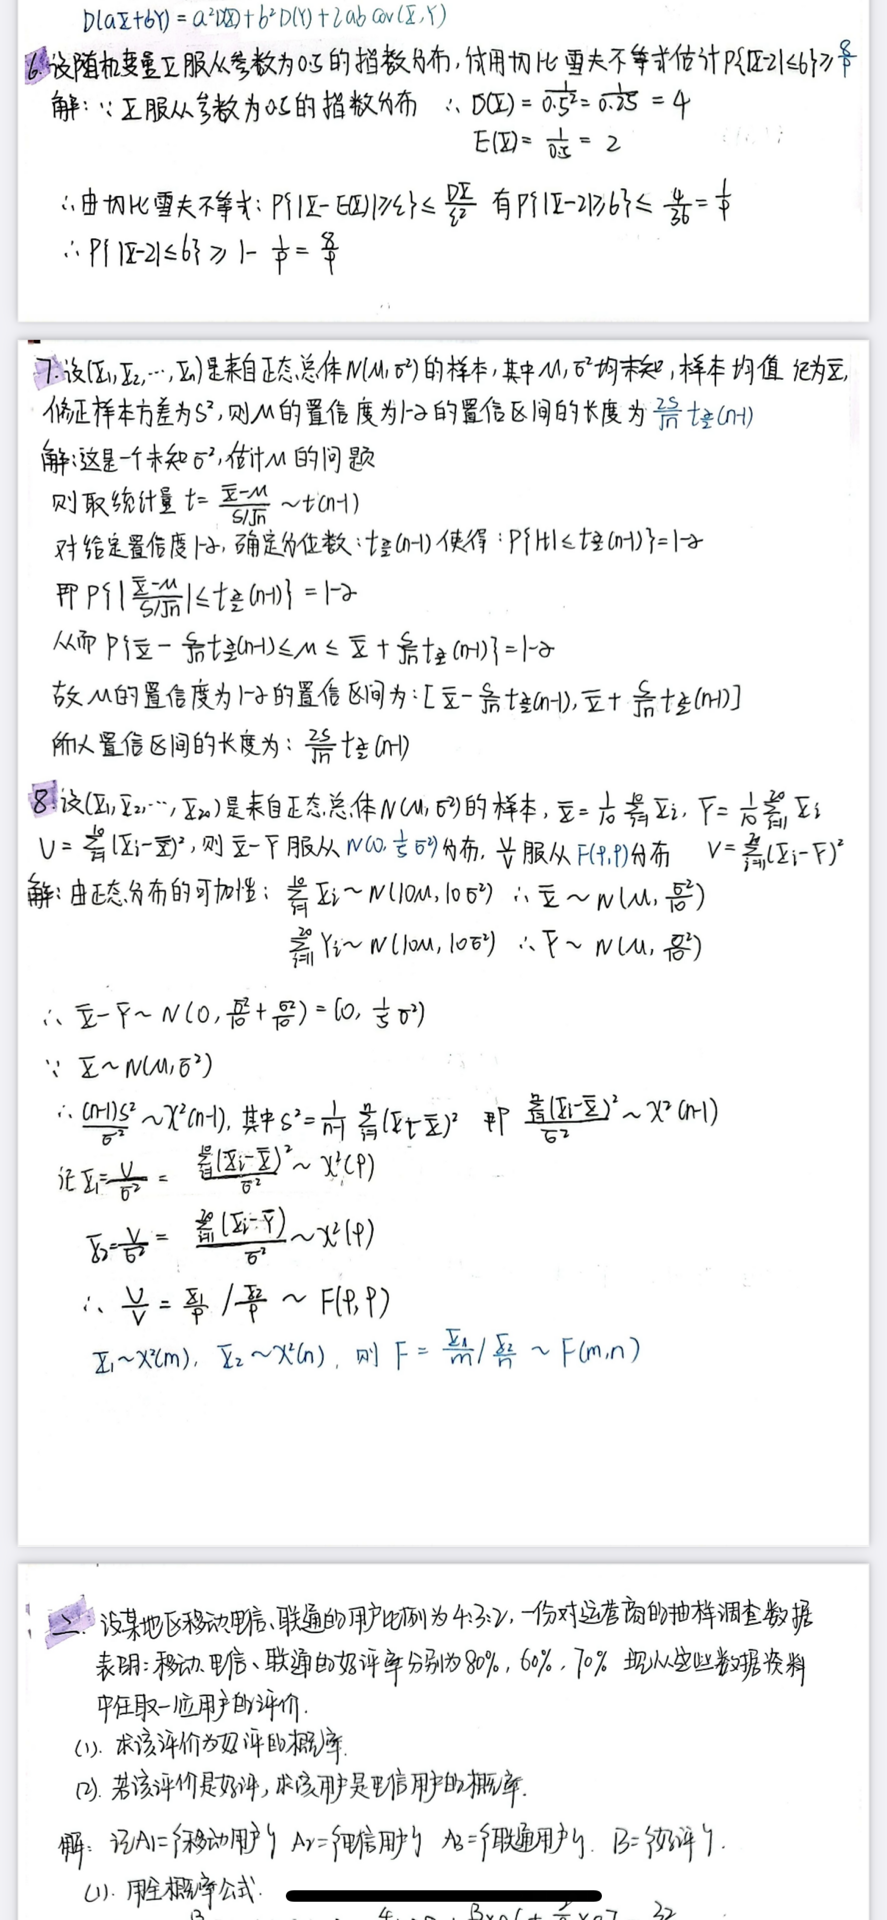 D(aX+bY) = a²D(X)+b²D(Y)+2ab Cov(X,Y)
6. 设随机变量X服从参数为0.5的指数分布,试用切比雪夫不等式估计P{|X-2|≤6}≥ 8/9
解:∵ X服从参数为0.5的指数分布 ∴ D(X) = 1/0.5² = 1/0.25 = 4
E(X) = 1/0.5 = 2
∴由切比雪夫不等式: P{|X-E(X)|≥ε}≤ DX/ε² 有P{|X-2|≥6}≤ 4/36 = 1/9
∴ P{|X-2|≤6} ≥ 1- 1/9 = 8/9
7. 设(X₁,X₂,…,Xn)是来自正态总体N(μ,σ²)的样本,其中μ,σ²均未知,样本均值记为X̄,
修正样本方差为S²,则μ的置信度为1-α的置信区间的长度为 2S/√n t_{α/2}(n-1)
解:这是一个未知σ²,估计μ的问题
则取统计量 t = (X̄-μ)/(S/√n) ~t(n-1)
对给定置信度1-α,确定分位数: t_{α/2}(n-1)使得: P{|t|≤t_{α/2}(n-1)}=1-α
即 P{|(X̄-μ)/(S/√n)|≤t_{α/2}(n-1)} = 1-α
从而 P{X̄ - S/√n t_{α/2}(n-1)≤μ≤ X̄ + S/√n t_{α/2}(n-1)}=1-α
故μ的置信度为1-α的置信区间为: [X̄ - S/√n t_{α/2}(n-1), X̄ + S/√n t_{α/2}(n-1)]
所以置信区间的长度为: 2S/√n t_{α/2}(n-1)
8. 设(X₁,X₂,…,X₂₀)是来自正态总体N(μ,σ²)的样本, X̄ = 1/10 Σ_{i=1}^{10} Xi, Ȳ = 1/10 Σ_{i=11}^{20} Xi
U = Σ_{i=1}^{10}(Xi-X̄)²,则X̄-Ȳ服从N(0, 1/5 σ²)分布, U/V 服从F(9,9)分布 V = Σ_{i=11}^{20}(Xi-Ȳ)²
解:由正态分布的可加性: Σ_{i=1}^{10} Xi ~ N(10μ,10σ²) ∴ X̄ ~ N(μ, σ²/10)
Σ_{i=11}^{20} Yi ~ N(10μ,10σ²) ∴ Ȳ ~ N(μ, σ²/10)
∴ X̄-Ȳ ~ N(0, σ²/10 + σ²/10) = (0, 1/5 σ²)
∵ X ~ N(μ,σ²)
∴ (n-1)S²/σ² ~χ²(n-1),其中S² = 1/(n-1) Σ_{i=1}^{n}(Xi-X̄)² 即 Σ_{i=1}^{n}(Xi-X̄)²/σ² ~ χ²(n-1)
记X₁= U/σ² = Σ_{i=1}^{10}(Xi-X̄)²/σ² ~ χ²(9)
X₂= V/σ² = Σ_{i=11}^{20}(Xi-Ȳ)/σ² ~χ²(9)
∴ U/V = X₁/9 / X₂/9 ~ F(9,9)
X₁~χ²(m), X₂~χ²(n), 则 F = X₁/m / X₂/n ~ F(m,n)
二. 设某地区移动、电信、联通的用户比例为4:3:2,一份对运营商的抽样调查数据
表明:移动、电信、联通的好评率分别为80%, 60%, 70% 现从这些数据资料
中任取一位用户的评价.
(1). 求该评价为好评的概率.
(2). 若该评价是好评,求该用户是电信用户的概率.
解: 记A₁={移动用户} A₂={电信用户} A₃={联通用户}. B={好评}.
(1). 用全概率公式.